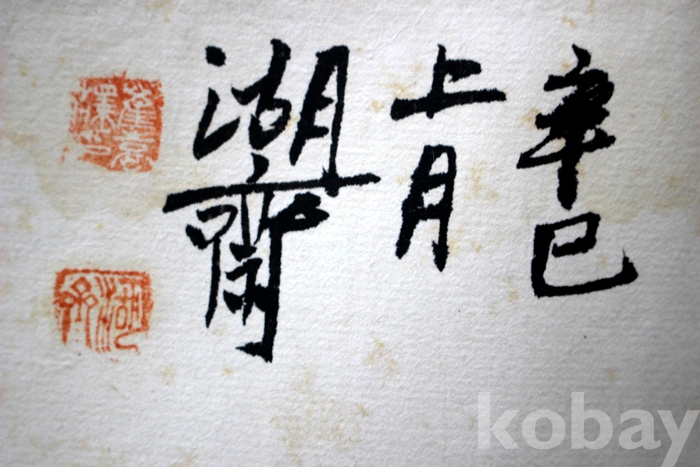 辛巳
上月
湖齋
kobay